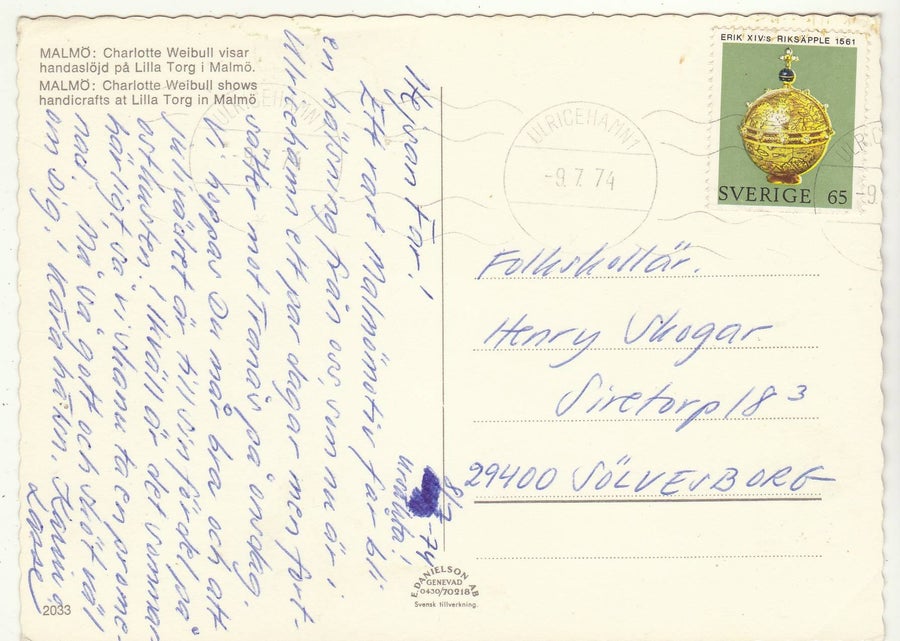 MALMÖ: Charlotte Weibull visar
handaslöjd på Lilla Torg i Malmö.
MALMÖ: Charlotte Weibull shows
handicrafts at Lilla Torg in Malmö
ERIK XIV:s RIKSÄPPLE 1561
SVERIGE 65
ULRICEHAMN 1
-9.7.74
8/7 -74
Hejsan Far!
Ett rart Malmömotiv får bli
en hälsning från oss, som nu är i
Ulricehamn ett par dagar men fort-
sätter mot Tranås på onsdag.
Vi hoppas Du mår bra och att
julivädret är till sin fördel på
ostkusten. Ikväll är det sommar-
härligt, så vi skall ta en prome-
nad. Må så gott och skötväl
om sig, kära hälsn.
Lasse
Folkskollär.
Henry Skogar
Siretorp 18 3
29400 SÖLVESBORG
E. DANIELSON AB
GENEVAD
0430/70218
Svensk tillverkning.
2033